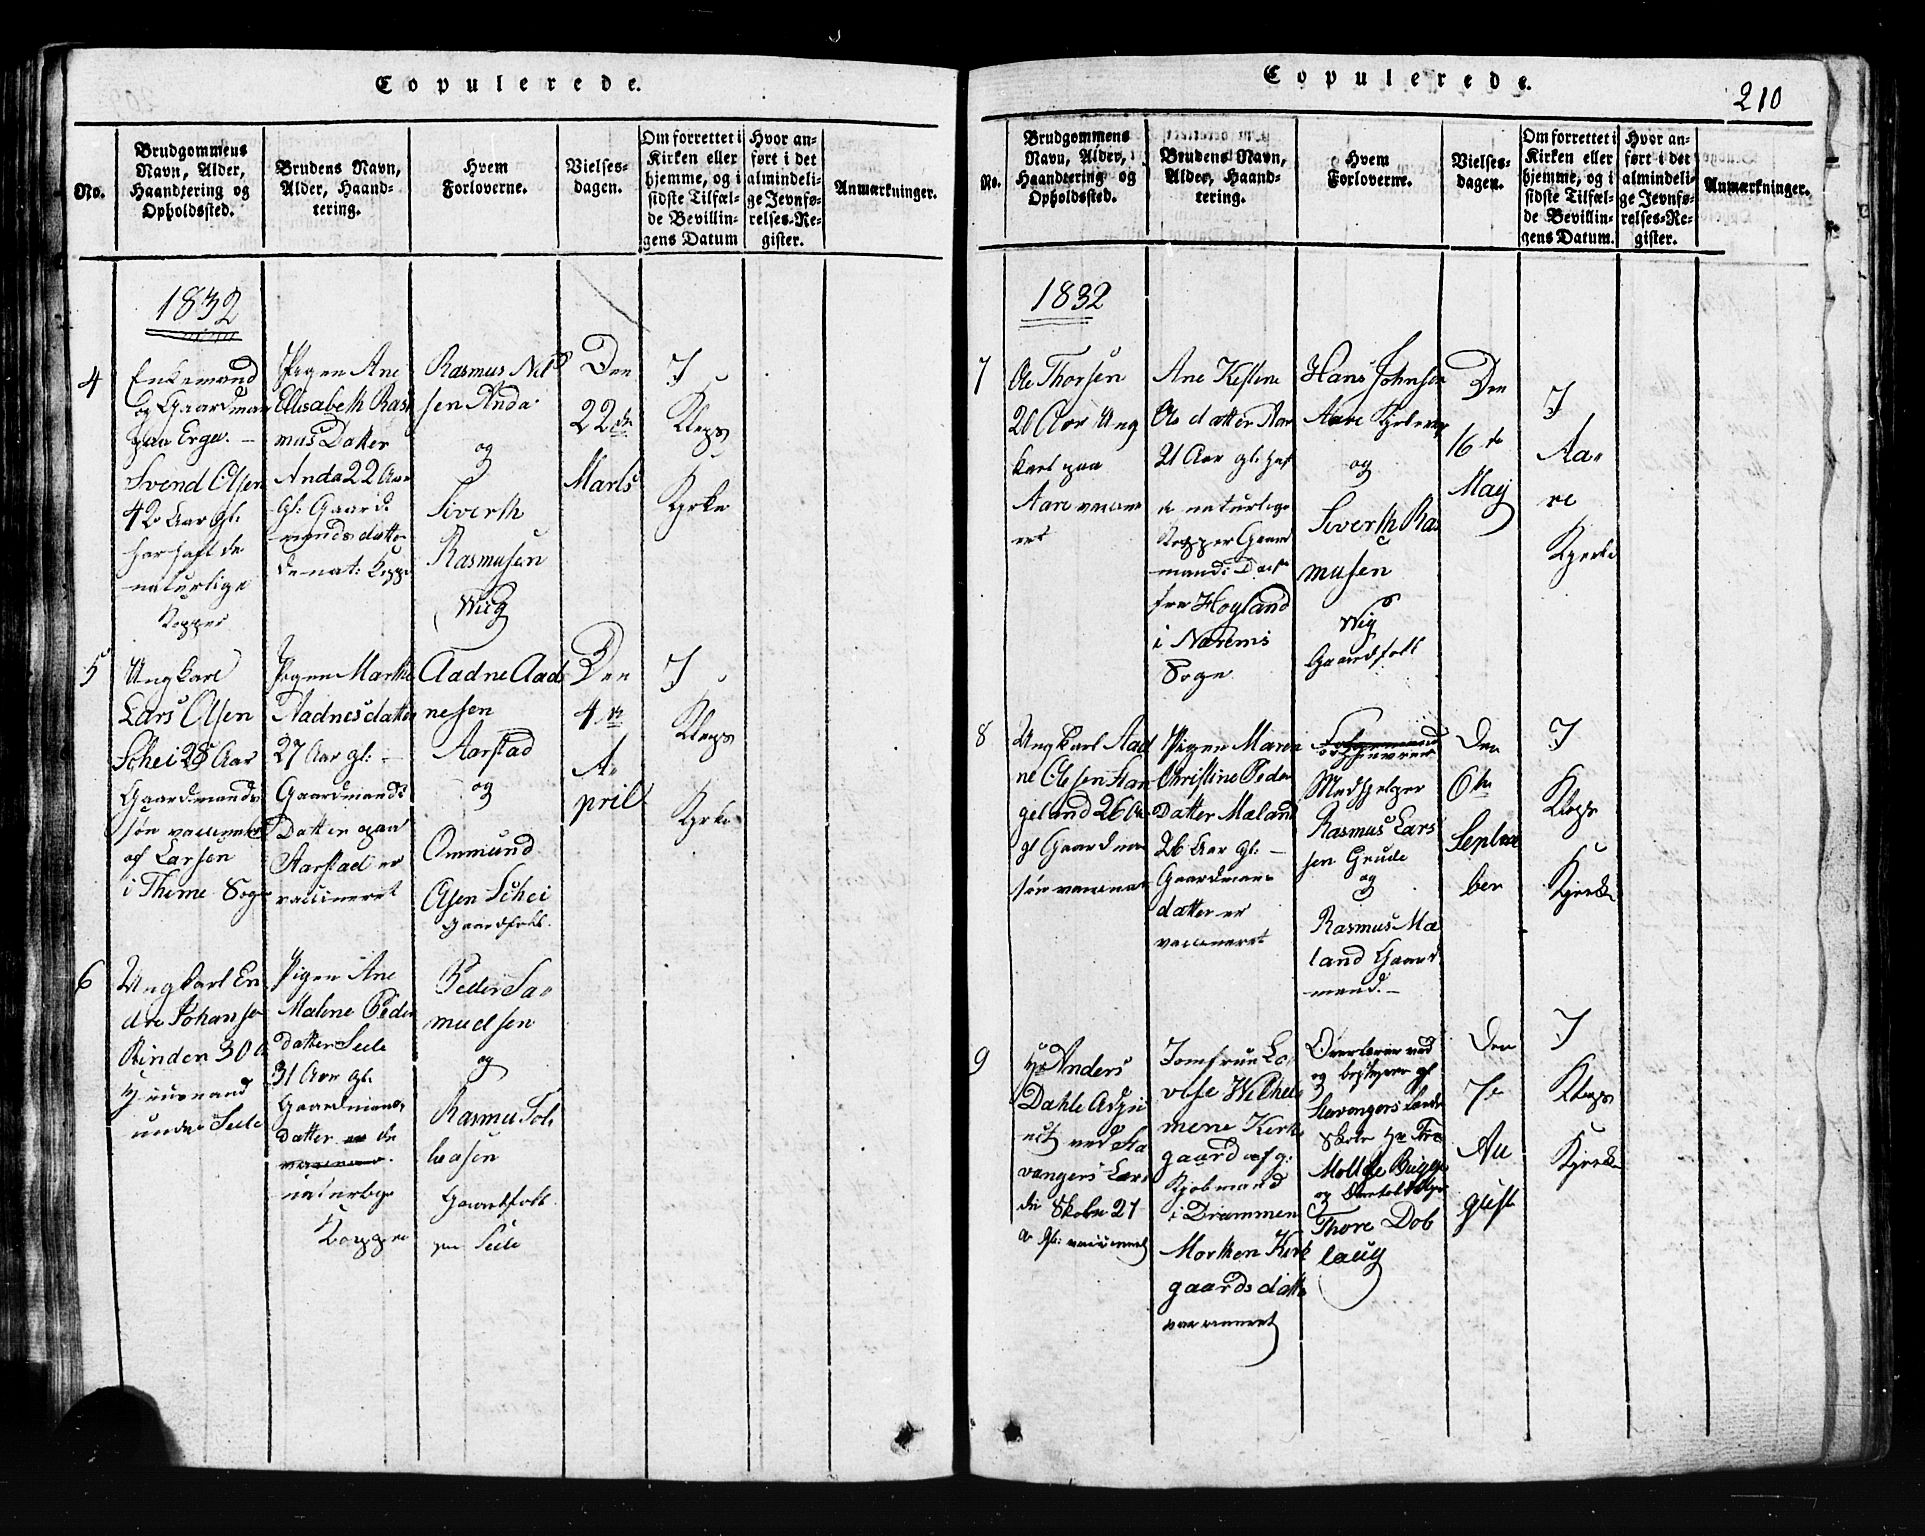 Copulerede.
No.
Brudgommens
Navn, Alder,
Haandtering og
Opholdssted.
Brudens Navn,
Alder, Haand-
tering.
Hvem
Forloverne.
Vielses-
dagen.
Om forrettet i
Kirken eller
hjemme, og i
sidste Tilfæl-
de Bevillin-
gens Datum
Hvor an-
ført i det
almindeli-
ge Jevnfø-
relses-Re-
gister.
Anmærkninger.
1832
4
Enkemand
og Gaardman
paa Erga. -
Svend Olsen
42 Aar gl.
har haft de
naturlige
Kopper
Pigen Ane
Elisabeth Ras
mus Datter
Anda 22 Aar
gl. Gaard
mands datter
de nat: Kopp
Rasmus Nils
sen Anda
og
Siverth
Rasmusen
Wiig
Den
22de
Marts
I
Kleps
Kjrke
5
Ungkarl
Lars Olsen
Schei 28 Aar
Gaardmands
søn vaccineret
af Larsen
i Thime Sogn
Pigen Marthe
Aadnesdatter
27 Aar gl: -
Gaardmands
Datter paa
Aarstad er
vaccineret
Aadne Aad
nesen
Aarstad
og
Ommund
Olsen Schei
Gaardfolk.
Den
4de
A-
pril
I
Kleps
Kjrke
6
Ungkarl En
dre Johansen
Rinden 30 A
Huusmand
under Seele
Pigen Ane
Malene Peder
datter Seele
31 Aar gl.
Gaardmans
datter er de
naturlige
Kopper
Peder Sa-
muelsen
og
Rasmus Tol
leasen
Gaardfolk
paa Seele
Copulerede.
210
No.
Brudgommens
Navn, Alder,
Haandtering og
Opholdssted.
Brudens Navn,
Alder, Haand-
tering.
Hvem
Forloverne.
Vielses-
dagen.
Om forrettet i
Kirken eller
hjemme, og i
sidste Tilfæl-
de Bevillin-
gens Datum.
Hvor an-
ført i det
almindeli-
ge Jevnfø-
relses-Re-
gister.
Anmærkninger.
1832
7
Ole Thorsen
26 Aar Ung
karl paa
Aare vaccine
ret
Ane Kestine
Ols datter Aar
21 Aar gl: haft
de naturlige
Kopper Gaard
mands Datter
fra Hogland
i Nærems
Sogn
Hans Johnsen
Aare
og
Siverth Ras
musen
Wig
Gaardfolk
Den
16de
Maij
I
Aa-
re
Kjerke
8
Ungkarl Aad
ne Olsen Han
geland 26 Aa
gl Gaardman
søn vaccineret
Pigen Maren
Christine Peder
Datter Mæland
26 Aar gl: -
Gaardmans
datter er
vaccineret
Medhjelper
Rasmus Lars
sen Grude
og
Rasmus Mæ
land Gaard
mand. -
Den
6te
Septem
ber
I
Kleps
Kjerke
9
Hr Anders
Dahle Adju
nct ved Sta
vangers Lær
de Skole 27
A gl: vaccineret
Jomfrue Lo
vise Wilhel
mene Kirke
gaard af g:
Kjøbmand
i Drammen
Morten Kirk
gaards datter
vaccineret
Overlærer ved
og bestyrer af
Stavangers Lærde
Skole Hr Fre
Moltke Bugge
og
Thore Dob
laug
Den
7de
Au
gust
I
Kleps
Kjerke